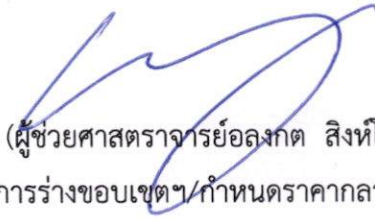 (ผู้ช่วยศาสตราจารย์อลงกต สิงห์โ
การร่างขอบเขตฯ/กำหนดราคากลา